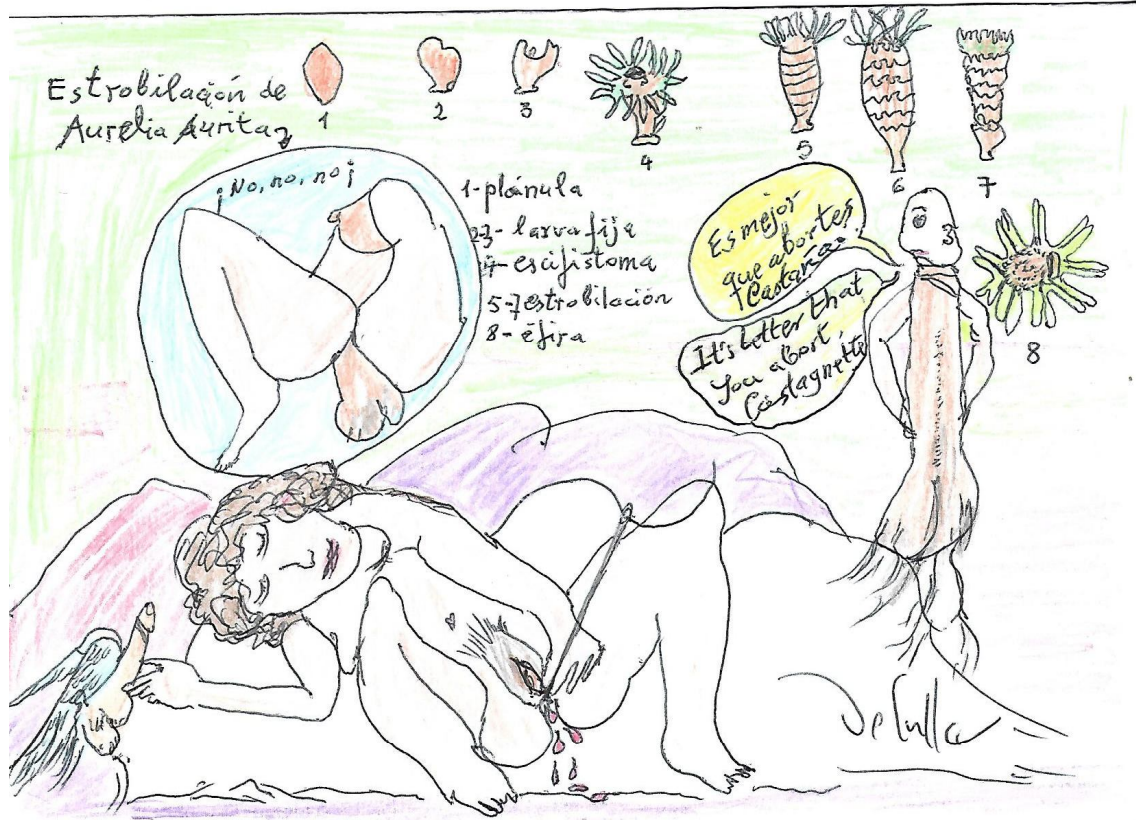 Estrobilación de
Aurelia Aurita
1
2
3
4
5
6
7
8
¡No, no, no¡
1-plánula
23-larva fija
4-escifistoma
5-7estrobilación
8-éfira
Es mejor
que abortes
Castaña.
It's better that
you abort
Castagnette